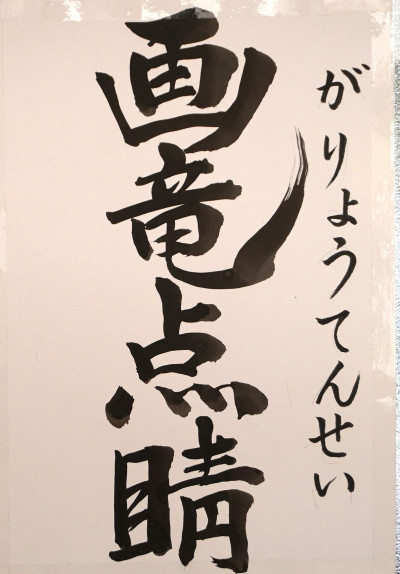 がりょうてんせい
画竜点睛